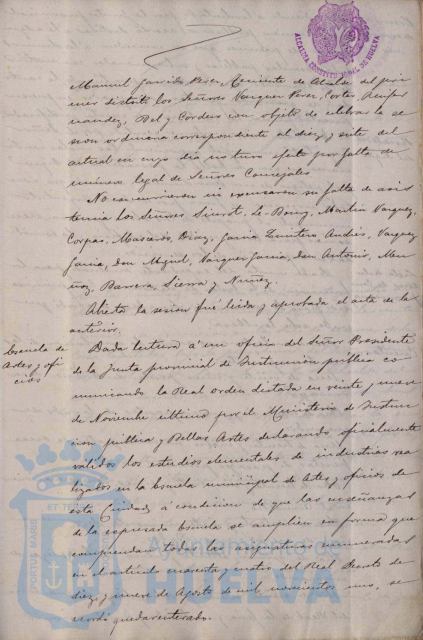 ALCALDIA CONSTITUCIONAL DE HUELVA
Manuel Garrido Perez, Teniente de Alcalde del pri
mer distrito los Señores Vazquez Perez, Cortes,
nandez, Bel y Cordero con objeto de celebrar la se
sion ordinaria correspondiente al diez y siete del
actual en cuyo dia no tuvo efecto por falta de
número legal de Señores Concejales.
No concurrieron ni escusaron su falta de asis
tencia los Señores Le-Bourg, Martin Vazquez,
Corpas, Mascarós, Diaz, Garcia Quintero Andrés, Vazquez
Garcia, Don Miguel, Vazquez Garcia, don Antonio, Mu
ñoz, Barrera, Sierra y Nuñez.
Abierta la sesion fué leida y aprobada el acta de la
anterior.
Escuela de
Artes y ofi
cios
Dada lectura á un oficio del Señor Presidente
de la Junta provincial de Instrucción pública co
municando la Real orden dictada en veinte y nueve
de Noviembre último por el Ministerio de Instruc
cion publica y Bellas Artes declarando oficialmente
válidos los estudios elementales de industrias rea
lizados en la Escuela municipal de Artes y oficios de
esta Ciudad, á condicion de que las enseñanzas
de la espresada Escuela se amplien en forma que
comprendan todas las asignaturas enumeradas
en el artículo cuarenta y cuatro del Real Decreto de
diez y nueve de Agosto de mil novecientos uno, se
acordó quedar enterado.
PORTUS MARIS
ET TERRAE
Ayuntamiento de
HUELVA